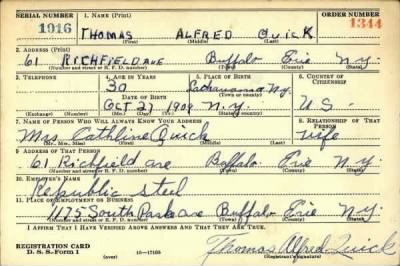 SERIAL NUMBER 1. NAME (Print) ORDER NUMBER
1916 THOMAS ALFRED QUICK 1344
(First) (Middle) (Last)
2. ADDRESS (Print)
61 RICHFIELD AVE Buffalo Erie N.Y.
(Number and street or R. F. D. number) (Town) (County) (State)
3. TELEPHONE 4. AGE IN YEARS 5. PLACE OF BIRTH 6. COUNTRY OF CITIZENSHIP
30 Lackawanna N.Y.
(Town or county)
DATE OF BIRTH
Oct 27 1909 N.Y. U.S.
(Exchange) (Number) (Mo.) (Day) (Yr.) (State or country)
7. NAME OF PERSON WHO WILL ALWAYS KNOW YOUR ADDRESS 8. RELATIONSHIP OF THAT PERSON
Mrs Cathline Quick Wife
(Mr., Mrs., Miss) (First) (Middle) (Last)
9. ADDRESS OF THAT PERSON
61 Richfield ave Buffalo Erie N.Y.
(Number and street or R. F. D. number) (Town) (County) (State)
10. EMPLOYER'S NAME
Republic Steel
11. PLACE OF EMPLOYMENT OR BUSINESS
1175 South Park ave Buffalo Erie N.Y.
(Number and street or R. F. D. number) (Town) (County) (State)
I AFFIRM THAT I HAVE VERIFIED ABOVE ANSWERS AND THAT THEY ARE TRUE.
REGISTRATION CARD
D. S. S. Form 1 (over) 16—17105 Thomas Alfred Quick
(Registrant's signature)